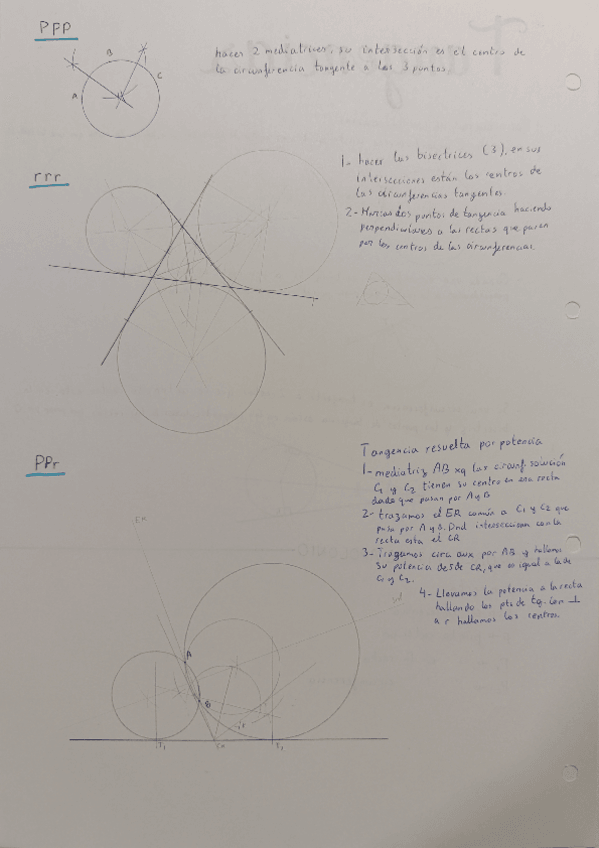 PPP
B
C
A
hacer 2 mediatrices, su intersección es el centro de
la circunferencia tangente a los 3 puntos.
rrr
1- hacer las bisectrices (3), en sus
intersecciones están los centros de
las circunferencias tangentes.
2- Marcar los puntos de tangencia haciendo
perpendiculares a las rectas que pasen
por los centros de las circunferencias.
PPr
Tangencia resuelta por potencia
1- mediatriz AB xq las circunf. solución
C1 y C2 tienen su centro en esa recta
dado que pasan por A y B
2- trazamos el ER común a C1 y C2 que
pasa por A y B. Dnd interseccionan con la
recta esta el CR
3- Trazamos circ aux por AB y hallamos
su potencia desde CR, que es igual a la de
C1 y C2.
4- Llevamos la potencia a la recta
hallando los pts de tg. Con ⊥
a r hallamos los centros.
ER
A
B
T1
CR
T2